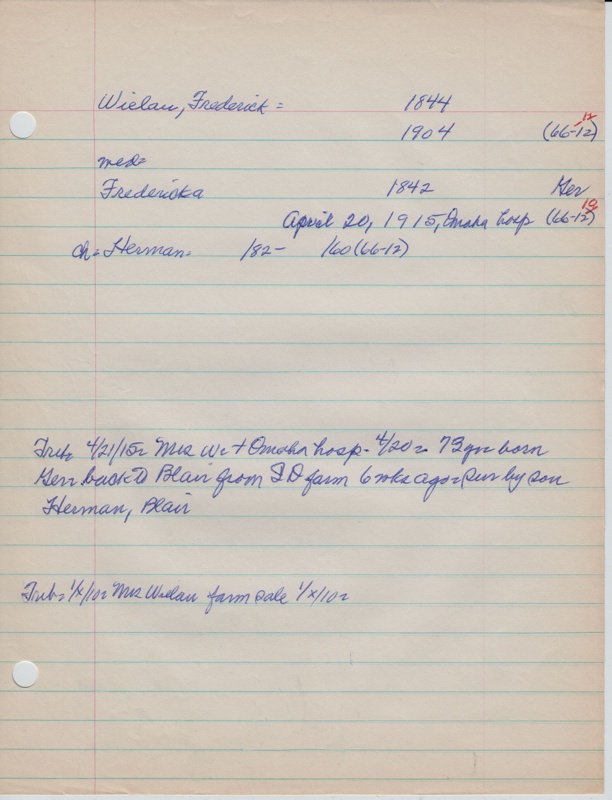 Wielau, Frederick = 1844
1904 (66-12) 12
med=
Fredericka 1842 Ger
April 20, 1915, Omaha hosp (66-12) 10
ch= Herman= /82- /60 (66-12)
Trib= 4/21/15= Mrs W= + Omaha hosp- 4/20= 73 yr= born
Ger= back to Blair from SD farm 6 wks ago= Sur by son
Herman, Blair
Trib= 1/x/10= Mrs Wielau farm sale 1/x/10=